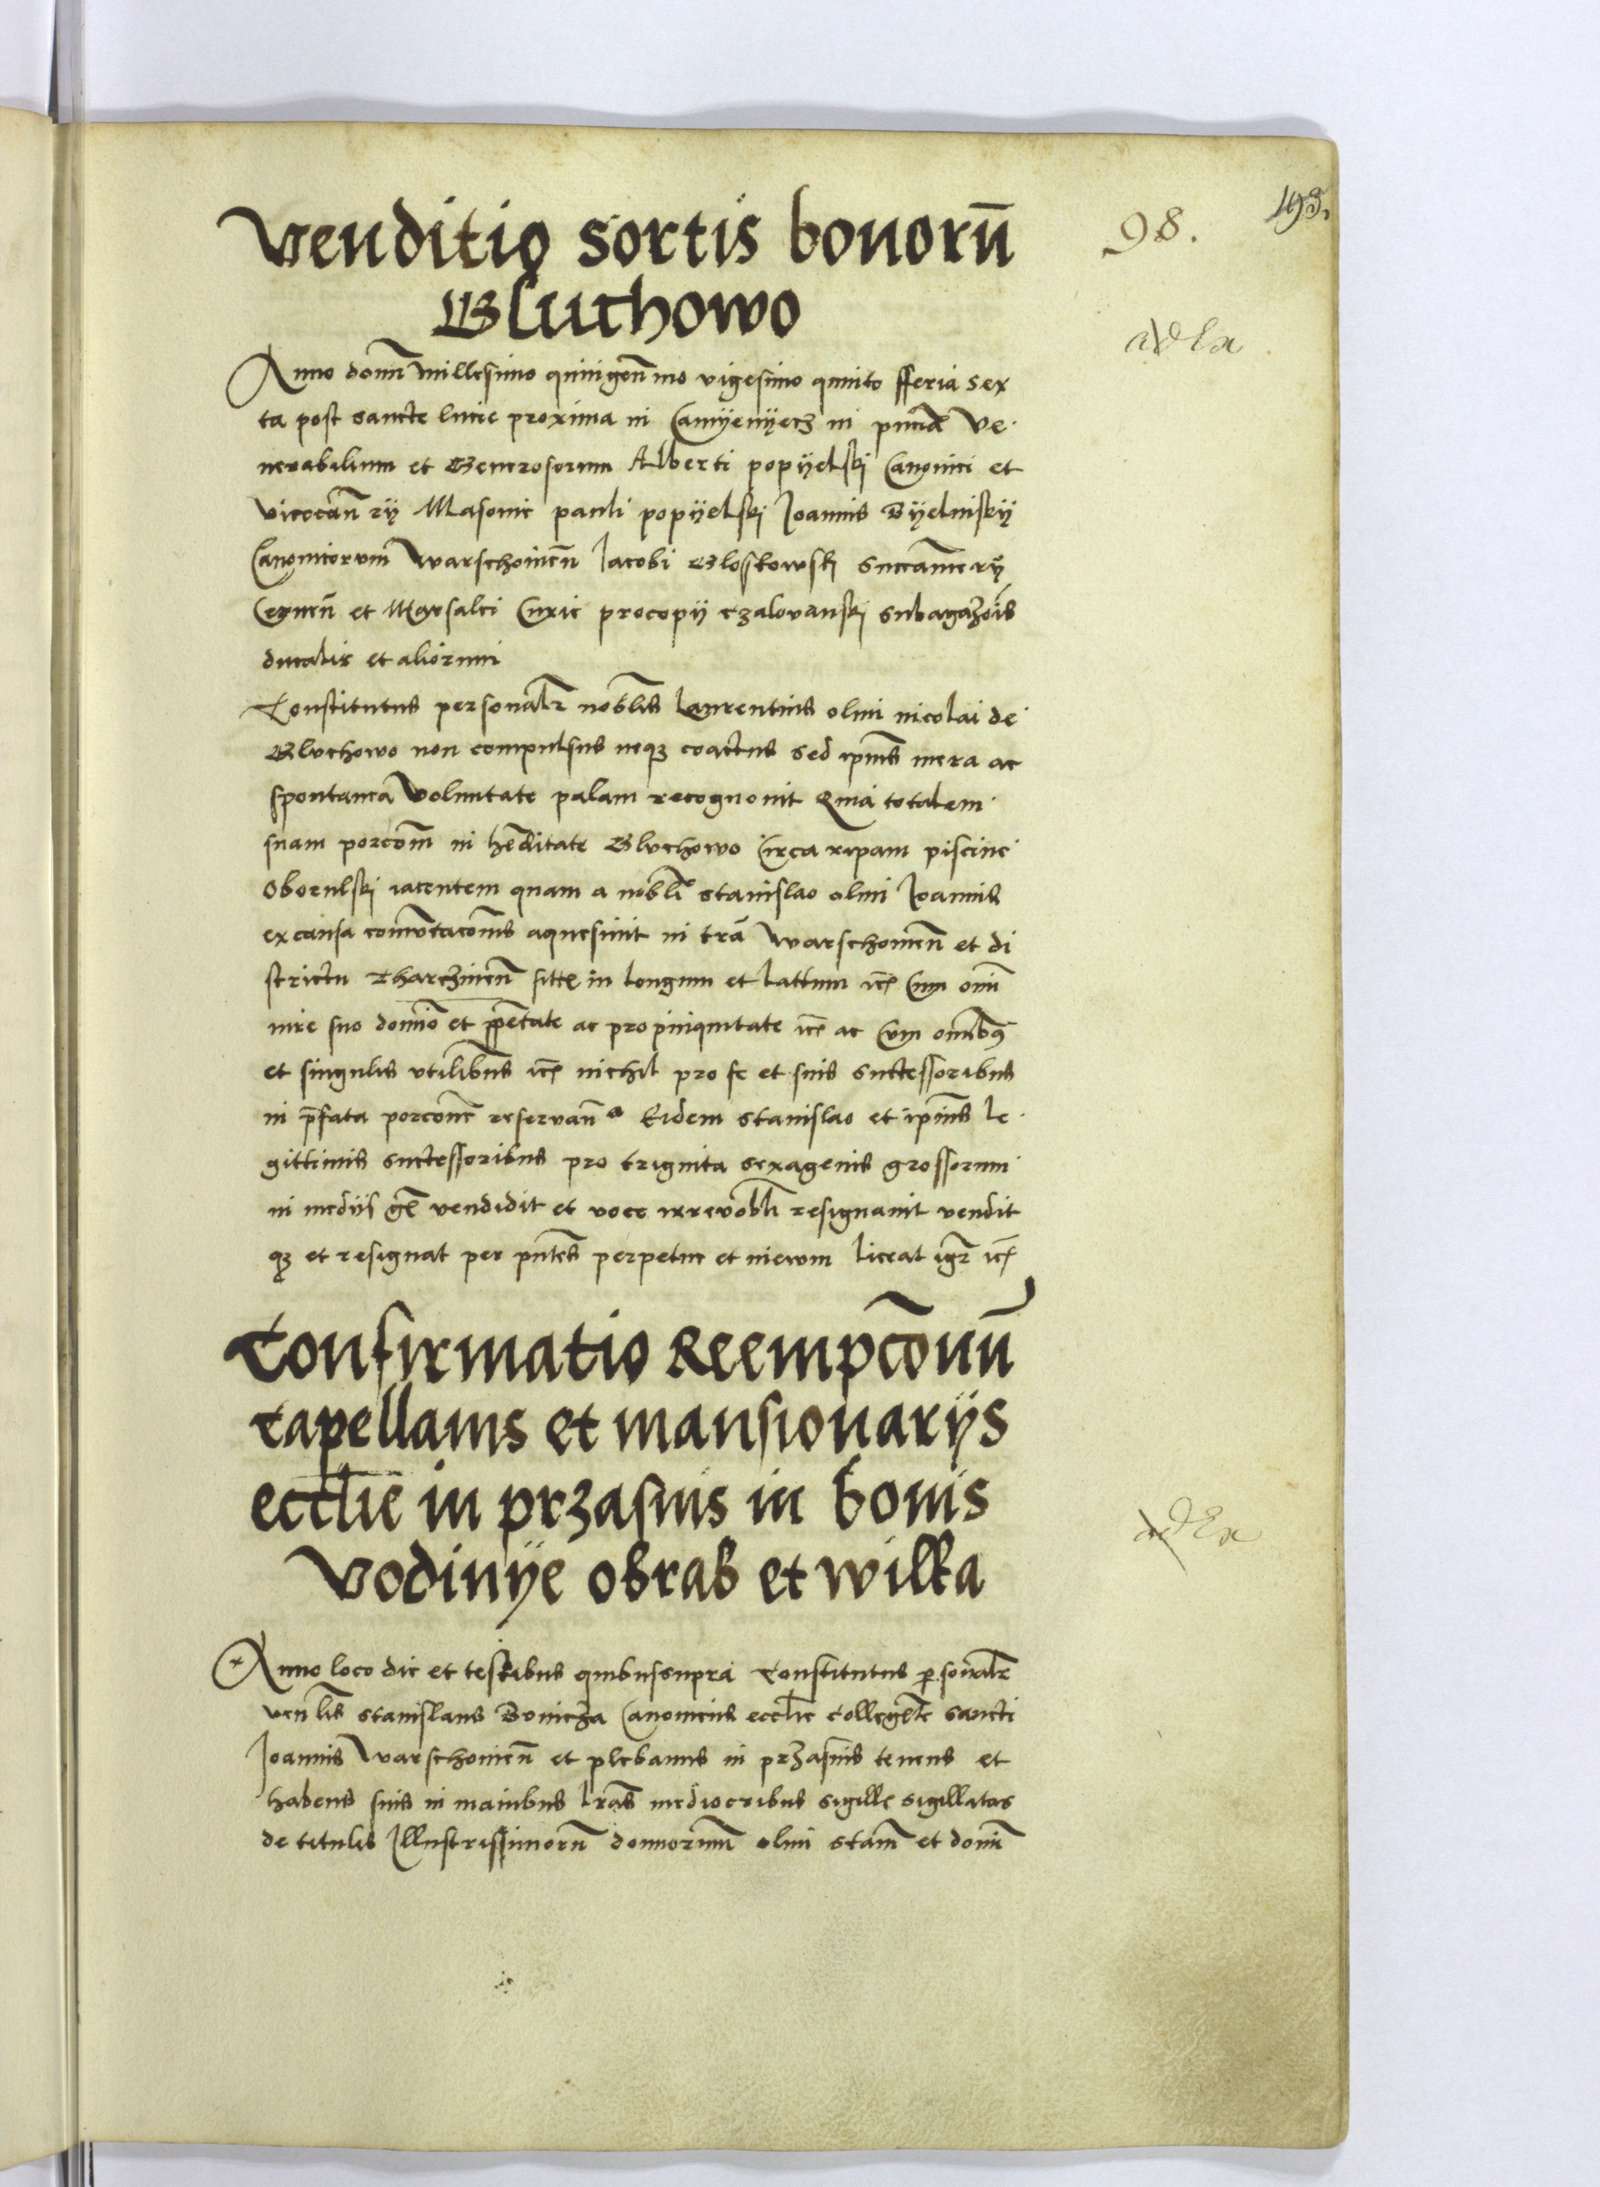 98.
193.
Venditio sortis bonorū
Gluchowo
ad Ex
Anno domī millesimo quingenmo vigesimo quinto fferia sex
ta post sancte lucie proxima in Camyenyecz in pntia Ve
nerabilium et Generosorum Alberti popyelski Canonici et
vicecan ry Masovie pauli popyelski Joannis Byelinsky
Canonicorum Warschovien Jacobi Gloskowski succamery
Cernen et Marsalci Curie procopy Czalovanski subagazōis
ducalis et aliorum
Constitutus personalr nobilis laurentius olim nicolai de
Gluchowo non compulsus neqz coactus sed ipius mera ac
spontanea Voluntate palam recognovit Quia totalem
suam porcom in heditate Gluchowo Circa ripam piscine
Oborulski iacentem quam a nobli stanislao olim Joannis
ex causa comutacomis aquesivit in tra Warschovien et di
strictu Tharczinen sitte in longum et lattum ec Cum omi
iure suo domio et ppetate ac propinquitate ec ac Cum omibus
et singulis utilibus ec nichil pro se et suis successoribus
in pfata porcone reservan Eidem stanislao et ipius le
gittimis successoribus pro triginta sexagenis grossorum
in mediis gl vendidit et voce irrevobli resignavit vendit
qz et resignat per pntes perpetue et inevum liceat igr ec
Confirmatio Reempcōnū
Capellanis et mansionariis
ecclie in przasnis in bonis
Vodinye obrab et wilka
ad Ex
Anno loco die et testibus quibussupra Constitutus psonalr
venlis stanislaus Bonicza Canonicus ecclie Collegte sancti
Joannis Warschovien et plebanus in przasnis tenens et
habens suis in manibus lras mediocribus sigille sigillatas
de titulis Illustrissimorū domorum olim stam et domi